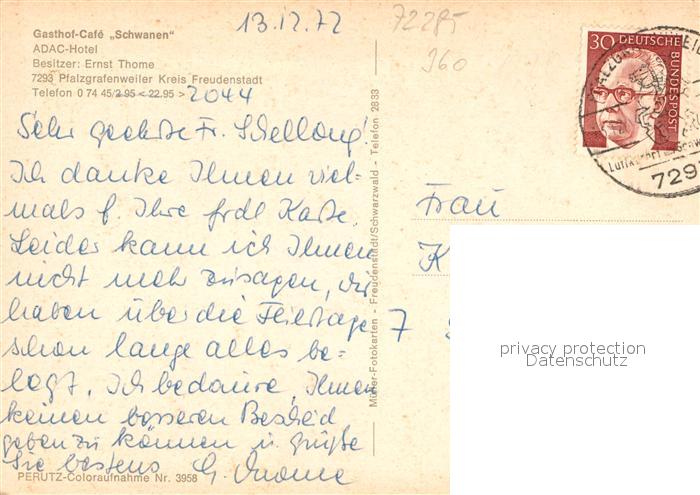 13.12.72
72285
360
Gasthof-Café „Schwanen"
ADAC-Hotel
Besitzer: Ernst Thome
7293 Pfalzgrafenweiler Kreis Freudenstadt
Telefon 0 74 45/2 95 < 22 95 > 2044
Sehr geehrte Fr. Schellong!
Ich danke Ihnen viel=
mals f. Ihre frdl Karte.
Leider kann ich Ihnen
nicht mehr zusagen, wir
haben über die Feiertage
schon lange alles be=
legt. Ich bedaure, Ihnen
keinen besseren Bescheid
geben zu können u. grüße
Sie bestens G. Thome
PERUTZ-Coloraufnahme Nr. 3958
Müller-Fotokarten - Freudenstadt/Schwarzwald - Telefon 2833
30 DEUTSCHE
BUNDESPOST
Luftkurort
729
Frau
K
7
privacy protection
Datenschutz